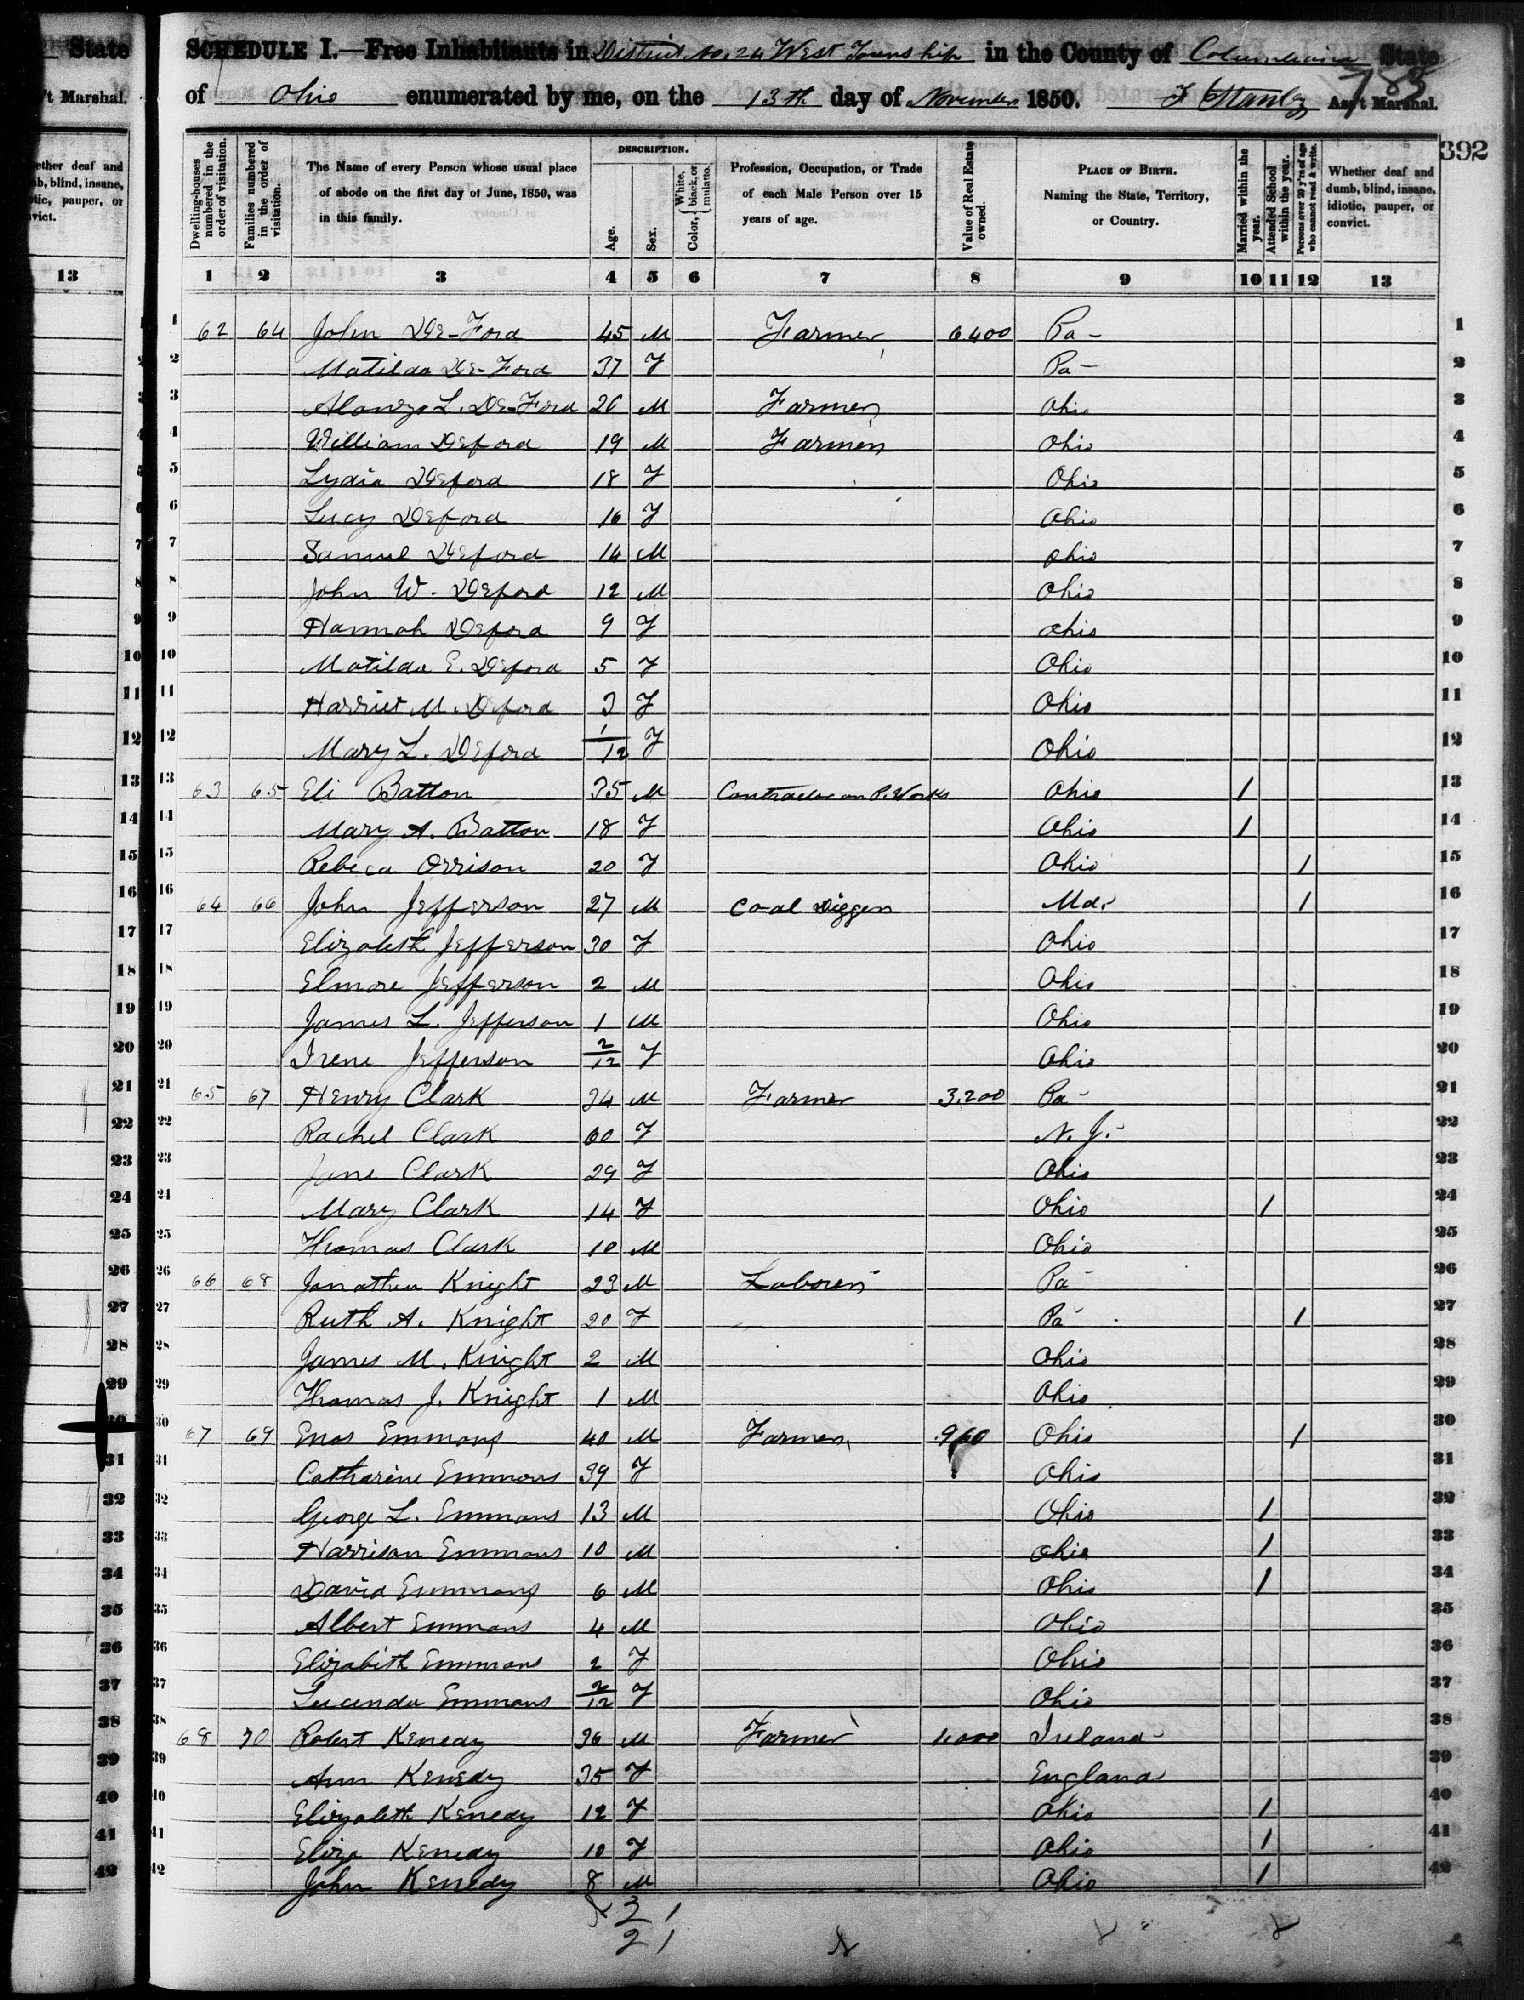 State
't Marshal.
ether deaf and
b, blind, insane,
otic, pauper, or
vict.
13
SCHEDULE I.—Free Inhabitants in District No. 24 West Township in the County of Columbiana State
of Ohio enumerated by me, on the 13th day of November 1850. Ass't Marshal.
392
Dwelling-houses numbered in the order of visitation.
Families numbered in the order of visitation.
The Name of every Person whose usual place
of abode on the first day of June, 1850, was
in this family.
DESCRIPTION.
Age.
Sex.
Color, { White, black, or mulatto.
Profession, Occupation, or Trade
of each Male Person over 15
years of age.
Value of Real Estate owned.
PLACE OF BIRTH.
Naming the State, Territory,
or Country.
Married within the year.
Attended School within the year.
Persons over 20 y'rs of age who cannot read & write.
Whether deaf and
dumb, blind, insane,
idiotic, pauper, or
convict.
1 2 3 4 5 6 7 8 9 10 11 12 13
1 62 64 John De-Ford 45 M Farmer 6400 Pa- 1
2 Matilda De-Ford 37 F Pa- 2
3 Alonzo L. De-Ford 20 M Farmer Ohio 3
4 William Deford 19 M Farmer Ohio 4
5 Lydia Deford 18 F Ohio 5
6 Lucy Deford 16 F Ohio 6
7 Samuel Deford 14 M Ohio 7
8 John W. Deford 12 M Ohio 8
9 Hannah Deford 9 F Ohio 9
10 Matilda E. Deford 5 F Ohio 10
11 Harriet M. Deford 3 F Ohio 11
12 Mary L. Deford 1/12 F Ohio 12
13 63 65 Eli Batton 35 M Contractor on P. Works Ohio 1 13
14 Mary A. Batton 18 F Ohio 1 14
15 Rebeca Orrison 20 F Ohio 1 15
16 64 66 John Jefferson 27 M Coal Digger Md. 1 16
17 Elizabeth Jefferson 30 F Ohio 17
18 Elmore Jefferson 2 M Ohio 18
19 James L. Jefferson 1 M Ohio 19
20 Irene Jefferson 2/12 F Ohio 20
21 65 67 Henry Clark 34 M Farmer 3.200 Pa- 21
22 Rachel Clark 60 F N. J. 22
23 Jane Clark 29 F Ohio 23
24 Mary Clark 14 F Ohio 1 24
25 Thomas Clark 10 M Ohio 25
26 66 68 Jonathan Knight 23 M Laborer Pa- 26
27 Ruth A. Knight 20 F Pa- 1 27
28 James M. Knight 2 M Ohio 28
29 Thomas J. Knight 1 M Ohio 29
30 67 69 Enos Emmons 40 M Farmer 960 Ohio 1 30
31 Catharine Emmons 39 F Ohio 31
32 George L. Emmons 13 M Ohio 1 32
33 Harrison Emmons 10 M Ohio 1 33
34 David Emmons 6 M Ohio 1 34
35 Albert Emmons 4 M Ohio 35
36 Elizabith Emmons 2 F Ohio 36
37 Lucinda Emmons 2/12 F Ohio 37
38 68 70 Robert Kenedy 36 M Farmer 1.000 Ireland 38
39 Ann Kenedy 35 F England 39
40 Elizabeth Kenedy 12 F Ohio 1 40
41 Eliza Kenedy 10 F Ohio 1 41
42 John Kenedy 8 M Ohio 1 42